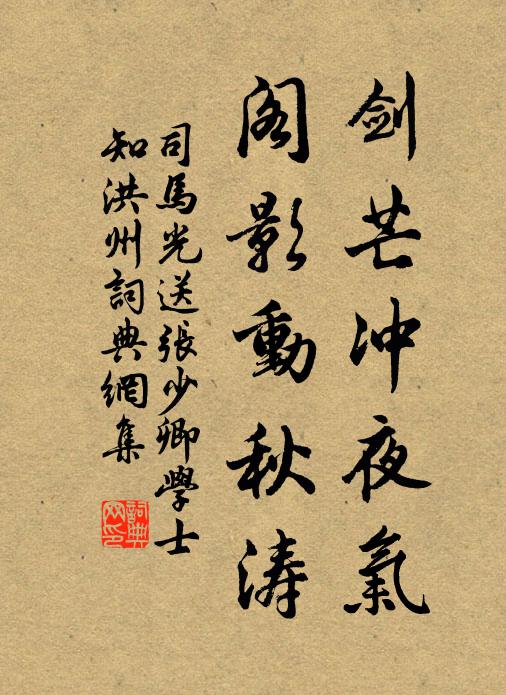 剑芒冲夜氣
阁影動秋涛
司馬光送張少卿學士
知洪州詞典網集
詞典
网印